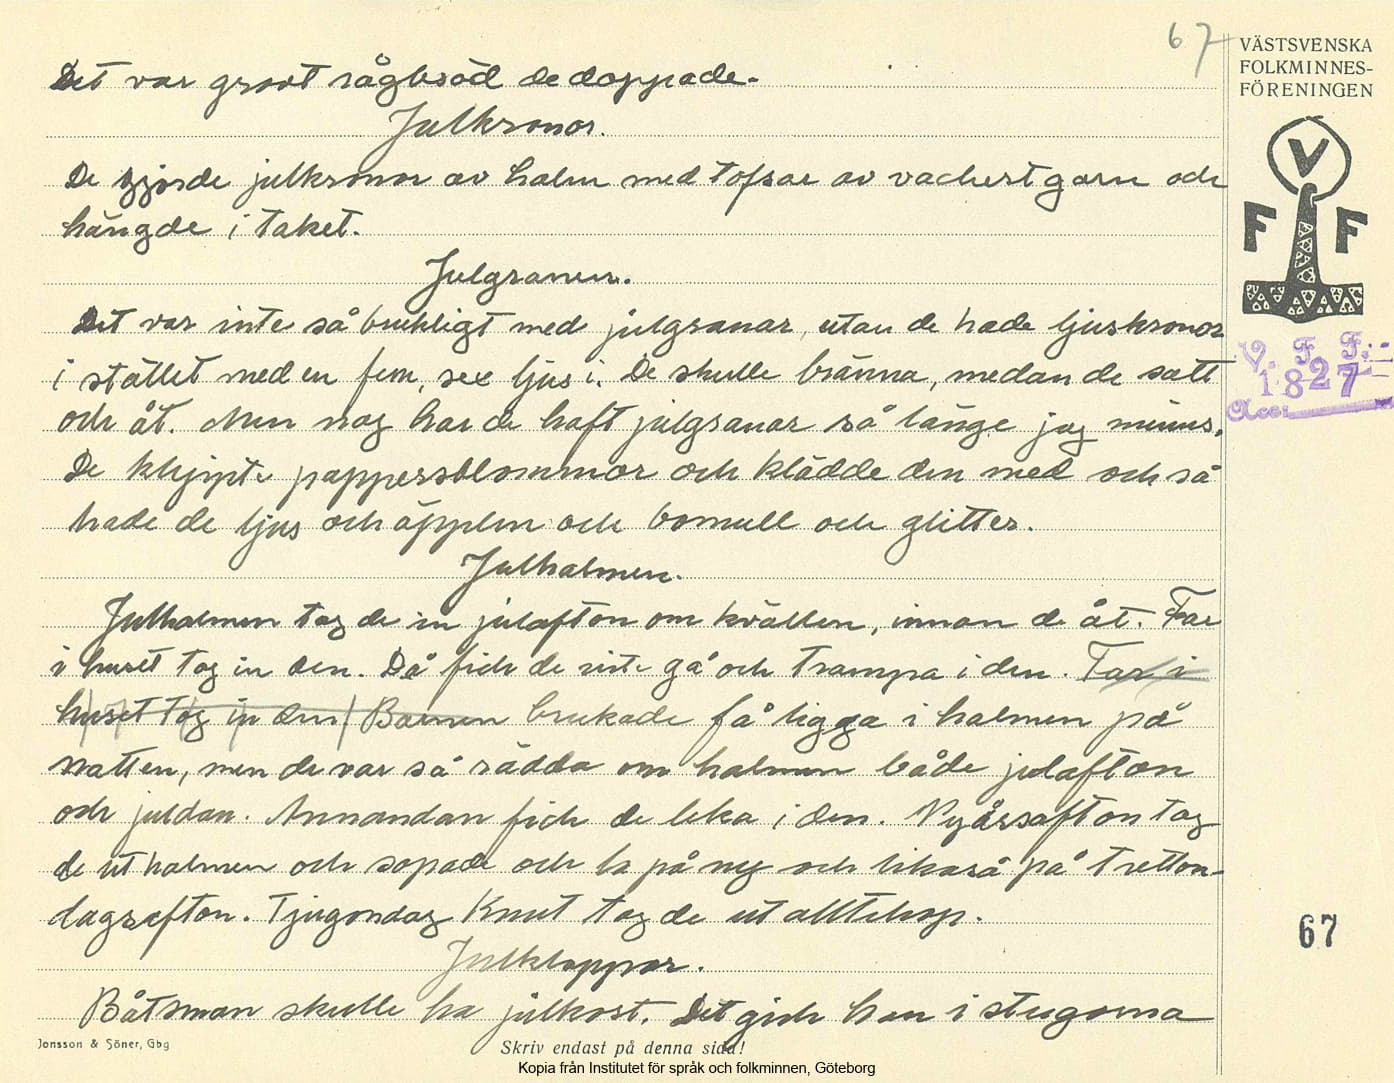 67
VÄSTSVENSKA
FOLKMINNES-
FÖRENINGEN
V
F F
V. F. F.
1827
Acc:
Det var grovt rågbröd de doppade.
Julkronor.
De gjorde julkronor av halm med tofsar av vackert garn och
hängde i taket.
Julgranen.
Det var inte så brukligt med julgranar, utan de hade ljuskronor
i stället med en fem, sex ljus i. De skulle bränna, medan de satt
och åt. Men nog har de haft julgranar så länge jag minns.
De klippte pappersblommor och klädde den med och så
hade de ljus och äpplen och bomull och glitter.
Julhalmen.
Julhalmen tog de in julafton om kvällen, innan de åt. Far
i huset tog in den. Då fick de inte gå och trampa i den. Far i
huset tog in den Barnen brukade få ligga i halmen på
natten, men de var så rädda om halmen både julafton
och juldan. Annandan fick de leka i den. Nyårsafton tog
de ut halmen och sopade och la på ny och likaså på tretton-
dagsafton. Tjugondag Knut tog de ut alltihop.
Julklappar.
Båtsman skulle ha julkost. Det gick han i stugorna
67
Jonsson & Söner, Gbg
Skriv endast på denna sida!
Kopia från Institutet för språk och folkminnen, Göteborg